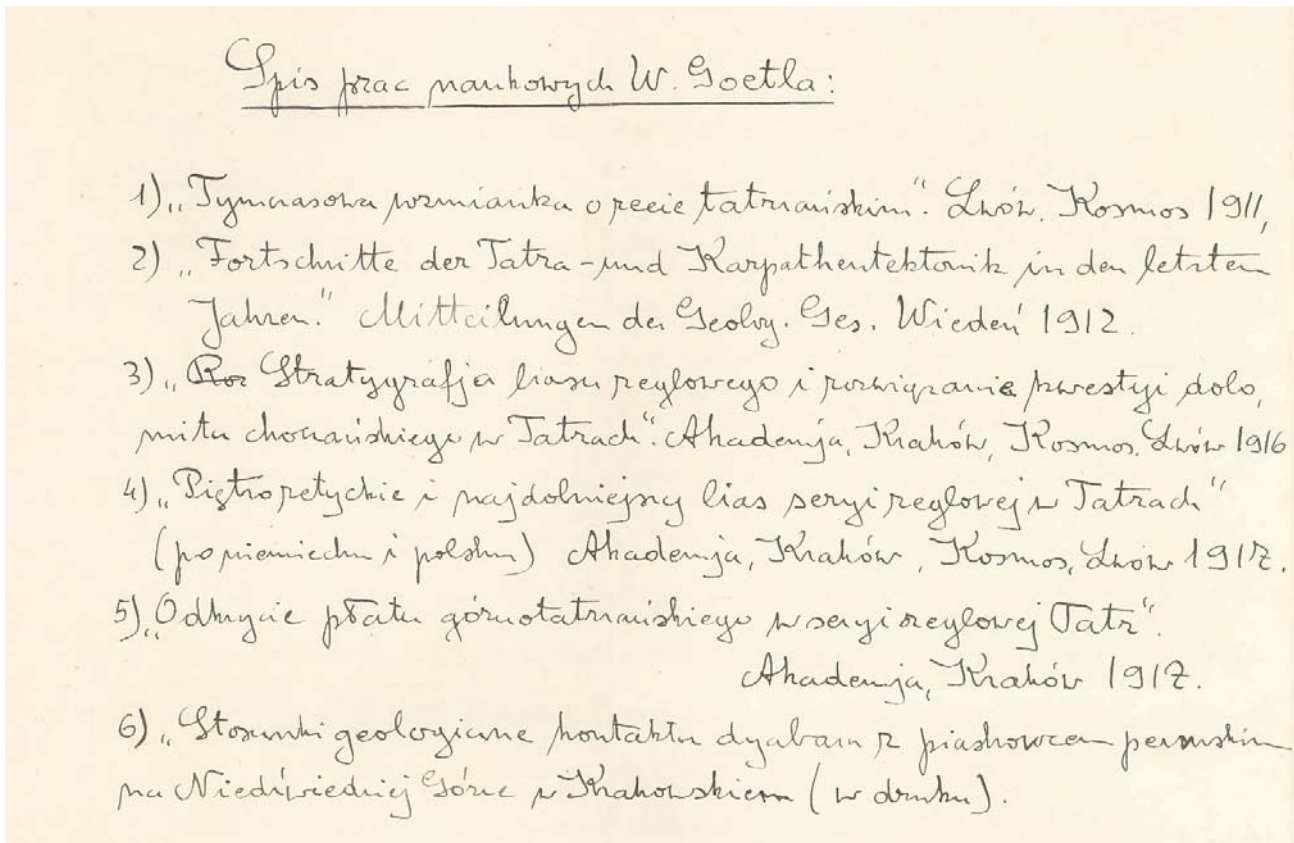 Spis prac naukowych W. Goetla:
1) „Tymczasowa wzmianka o recie tatrzańskim”. Lwów. Kosmos 1911,
2) „Fortschritte der Tatra- und Karpathentektonik in den letzten
Jahren.” Mitteilungen der Geolog. Ges. Wiedeń 1912.
3) „Roz Stratygrafja liasu reglowego i rozwiązanie kwestyi dolo,
mitu choczańskiego w Tatrach”. Akademja, Kraków, Kosmos, Lwów 1916
4) „Piętro retyckie i najdolniejszy lias seryi reglowej w Tatrach”
(po niemiecku i polsku) Akademja, Kraków, Kosmos, Lwów 1917.
5) „Odkrycie płatu górnotatrzańskiego w seryi reglowej Tatr”.
Akademja, Kraków 1917.
6) „Stosunki geologiczne kontaktu dyabazu z piaskowcem permskim
na Niedźwiedziej Górze w Krakowskiem (w druku).